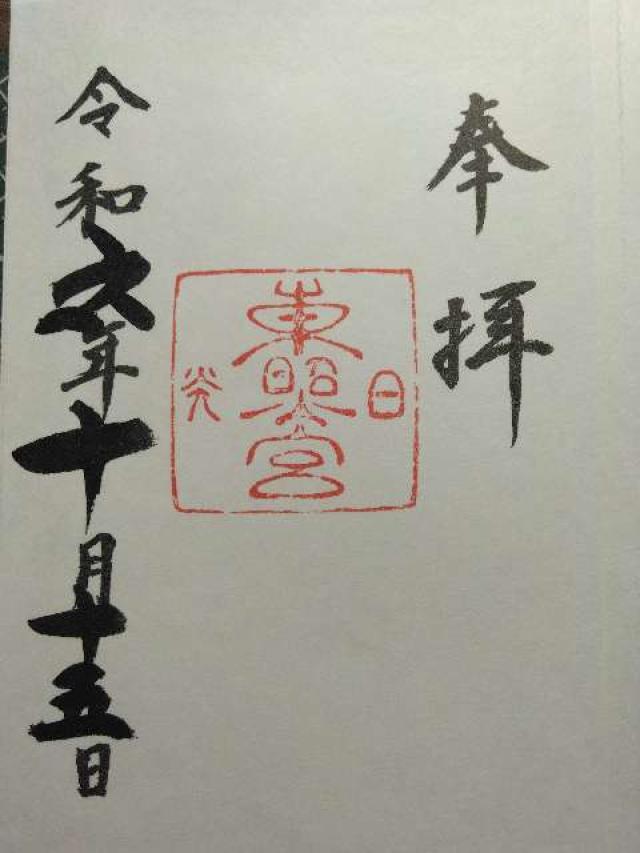 奉拝
日
東照宮
光
令和六年十月十五日